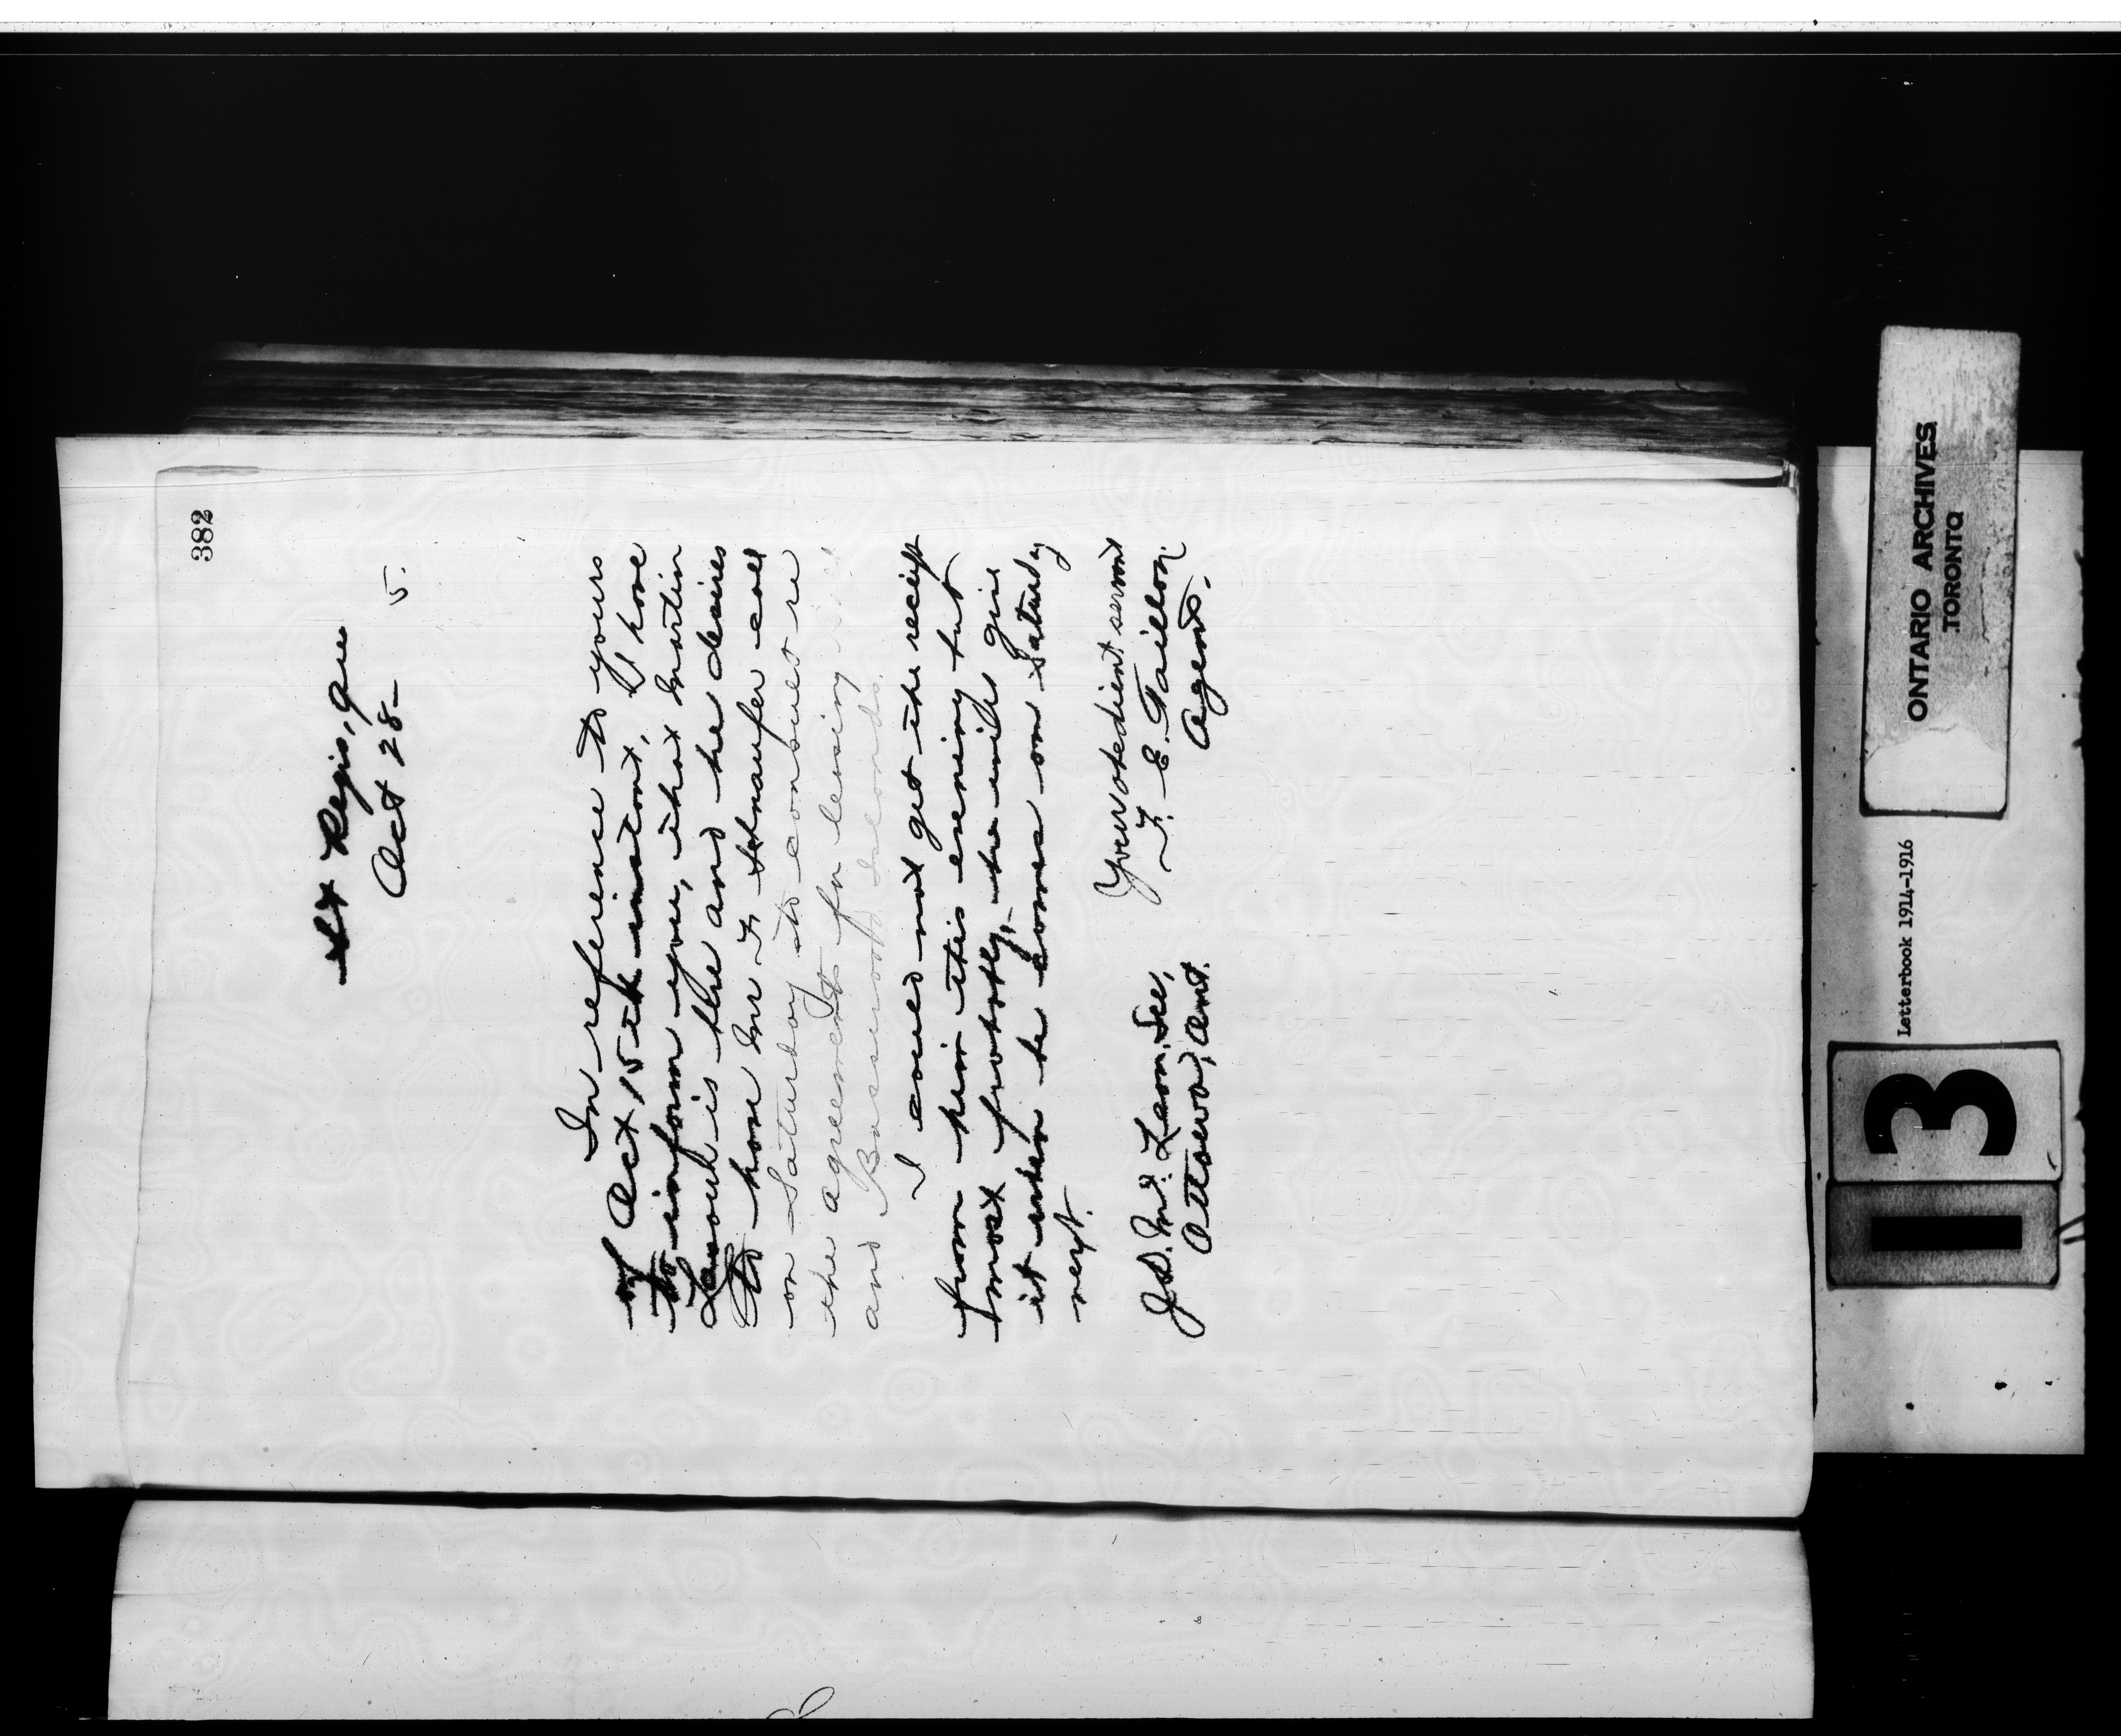 382
St Regis, Que
Oct 28– 5.
In reference to yours
of Oct 15th instant, I have
to inform you, that Martin
is the and he desires
to have Mr call
on Saturday to consult re
the agreements for leasing
and Islands.
I could not get the receipt
from him this evening but
most probably, he will give
it when he comes on Saturday
next.
Your obedient servant
F. E. Taillon
Agent.
J.D. McLean, Sec,
Ottawa, Ont.
ONTARIO ARCHIVES
TORONTO
Letterbook 1914-1916
3